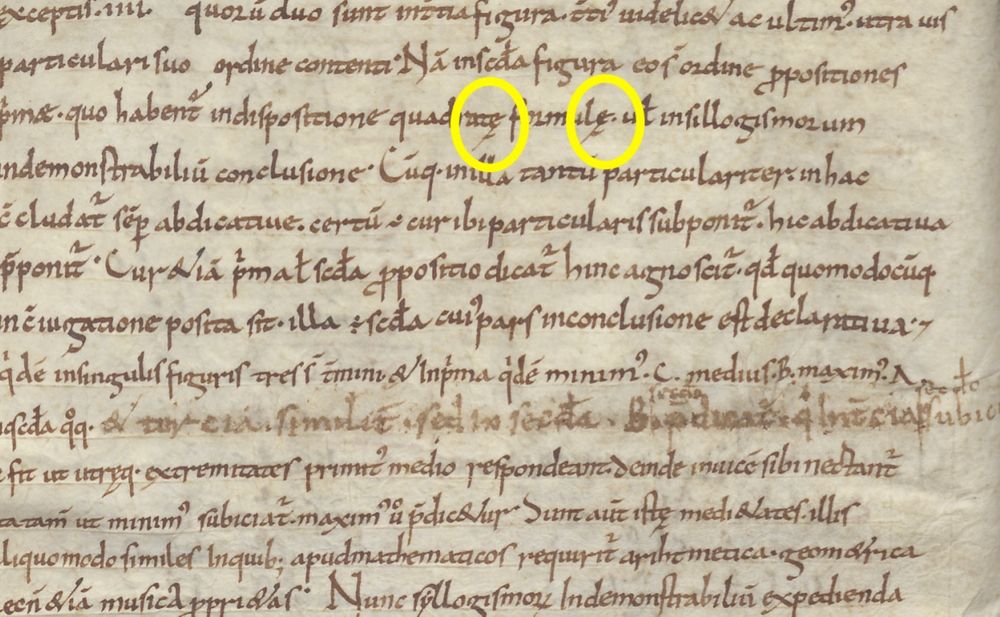 exceptis .iiii. quorū duo sunt in tertia figura. t̄ti' uidelic& ac ultim'. utra uis
particulari suo ordine contenti. Nā in scd̄a figura eos̄ ordine ꝓpositiones
p̄mæ. quo habent᷑ in dispositione quadratę formulę. uł in sillogismorum
indemonstrabiliū conclusione. Cūq. in illa tantū particulariter. in hac
c̄cludat᷑ sēp abdicative. certū ÷ cur ibi particularis subponit᷑. hic abdicativa
p̄ponit᷑. Cur &iā p̄ma ał scd̄a ꝓpositio dicat᷑ hinc agnoscit᷑. qđ quomodocūq.
in c̄iugatione posita sit. illa ÷ scd̄a cui' pars in conclusione est declarativa.
q̓dē in singulis figuris tres s̄ t̄mini. & In p̄ma q̓dē minim'. C. medius. B. maxim'. A.
scd̄a q̊q. & tercia. similit᷑. sed in scd̄a. B. subici
sit ut utręq. extremitates primit' medio respondeant. deinde inuicē sibi nectant᷑
tatam̄ ut minim' subiciat᷑. maxim' ů p̄dic&ur. Sunt aūt istę medi&ates illis
liquomodo similes In quib; apud mathematicos requirit᷑ arihtmetica. geom&rica
&iā musica ꝓpri&as. Nunc syllogismoꝝ Indemonstrabiliū expedienda